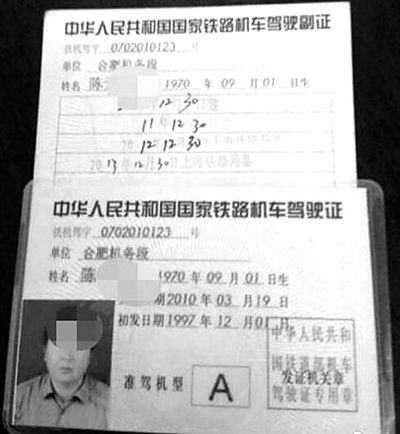 中华人民共和国国家铁路机车驾驶副证
铁机驾字 0702010123 号
单位 合肥机务段
姓名 陈 1970 年 09 月 01 日生
12 30
11 年 12 30
12 12 30
2013 年 12 月 30 日
中华人民共和国国家铁路机车驾驶证
铁机驾字 0702010123 号
单位 合肥机务段
姓名 陈 1970 年 09 月 01 日生
期 2010 年 03 月 19 日
初发日期 1997 年 12 月 01 日
准驾机型 A
中华人民共和
国铁道部机车
发证机关章
驾驶证专用章